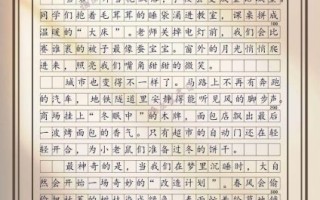 同学们抱着毛茸茸的睡袋涌进教室，课桌拼成
温暖的“大床”。老师关掉电灯前，我们会比
赛谁裹的被子最像蚕宝宝。窗外的月光悄悄爬
进来，照亮我们嘴角甜甜的微笑。
城市也变得不一样了。马路上不再有奔跑
的汽车，地铁隧道里安静得能听见风的脚步声
商场挂上“冬眠中”的木牌，面包店飘出最后
一波烤面包的香气。只有超市的自动门还在轻
轻开合，为小老鼠们准备过冬的饼干。
最神奇的是，当我们在梦里沉睡时，大自
然会开始一场奇妙的“改造计划”。春风会偷